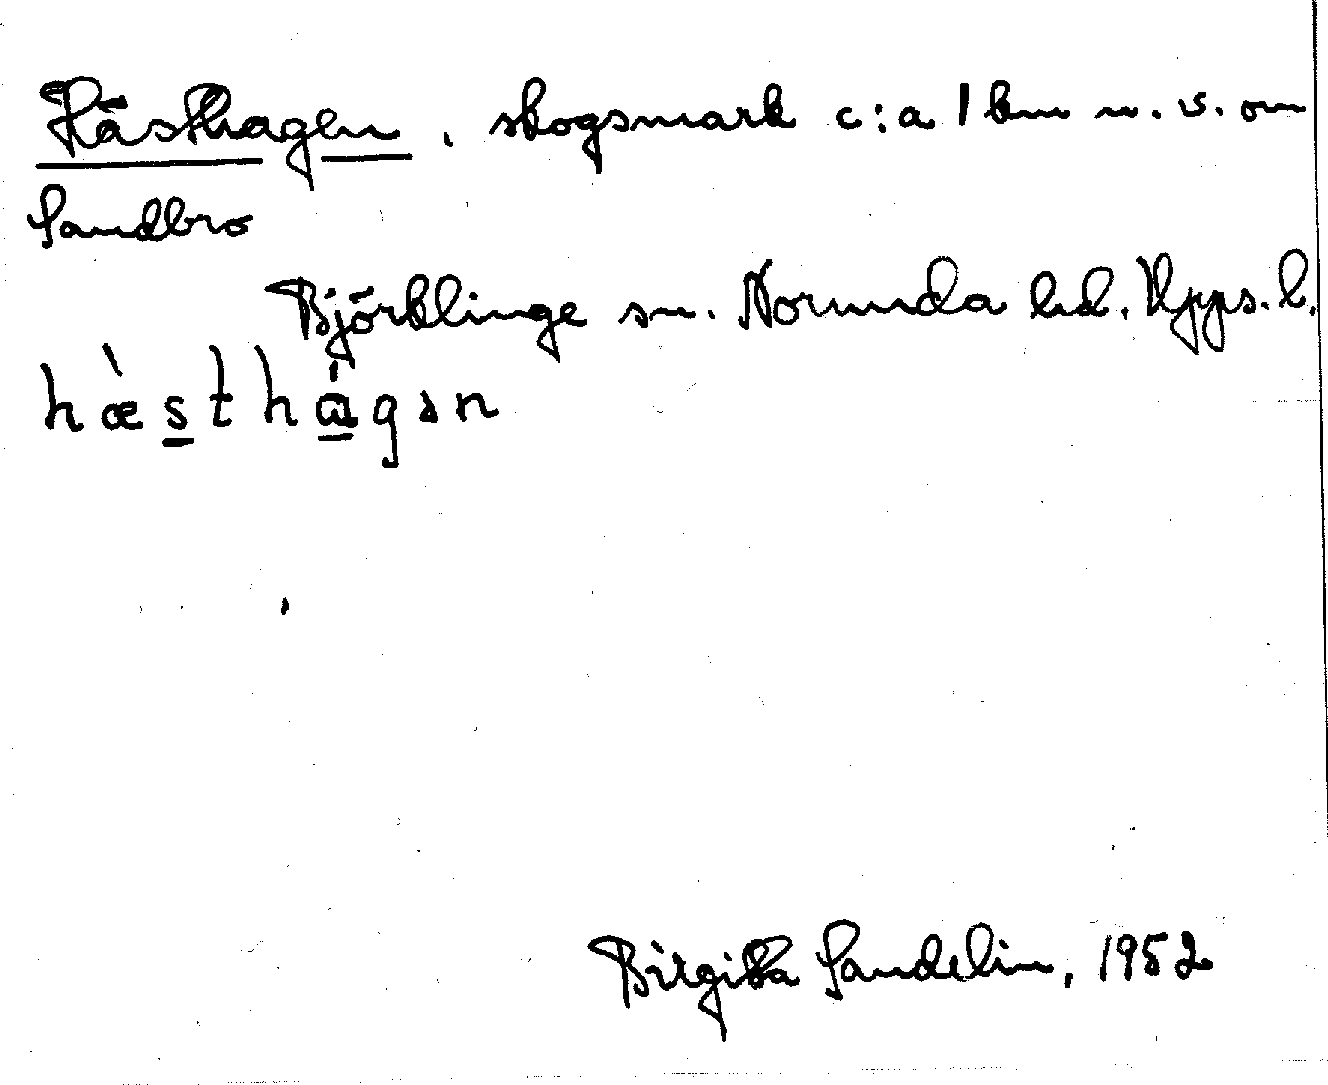 Hästhagen, skogsmark c:a 1 km n.v. om
Sandbro
Björklinge sn. Norunda hd. Upps. l.
hæ̀sthágən
Birgitta Sandelin, 1952